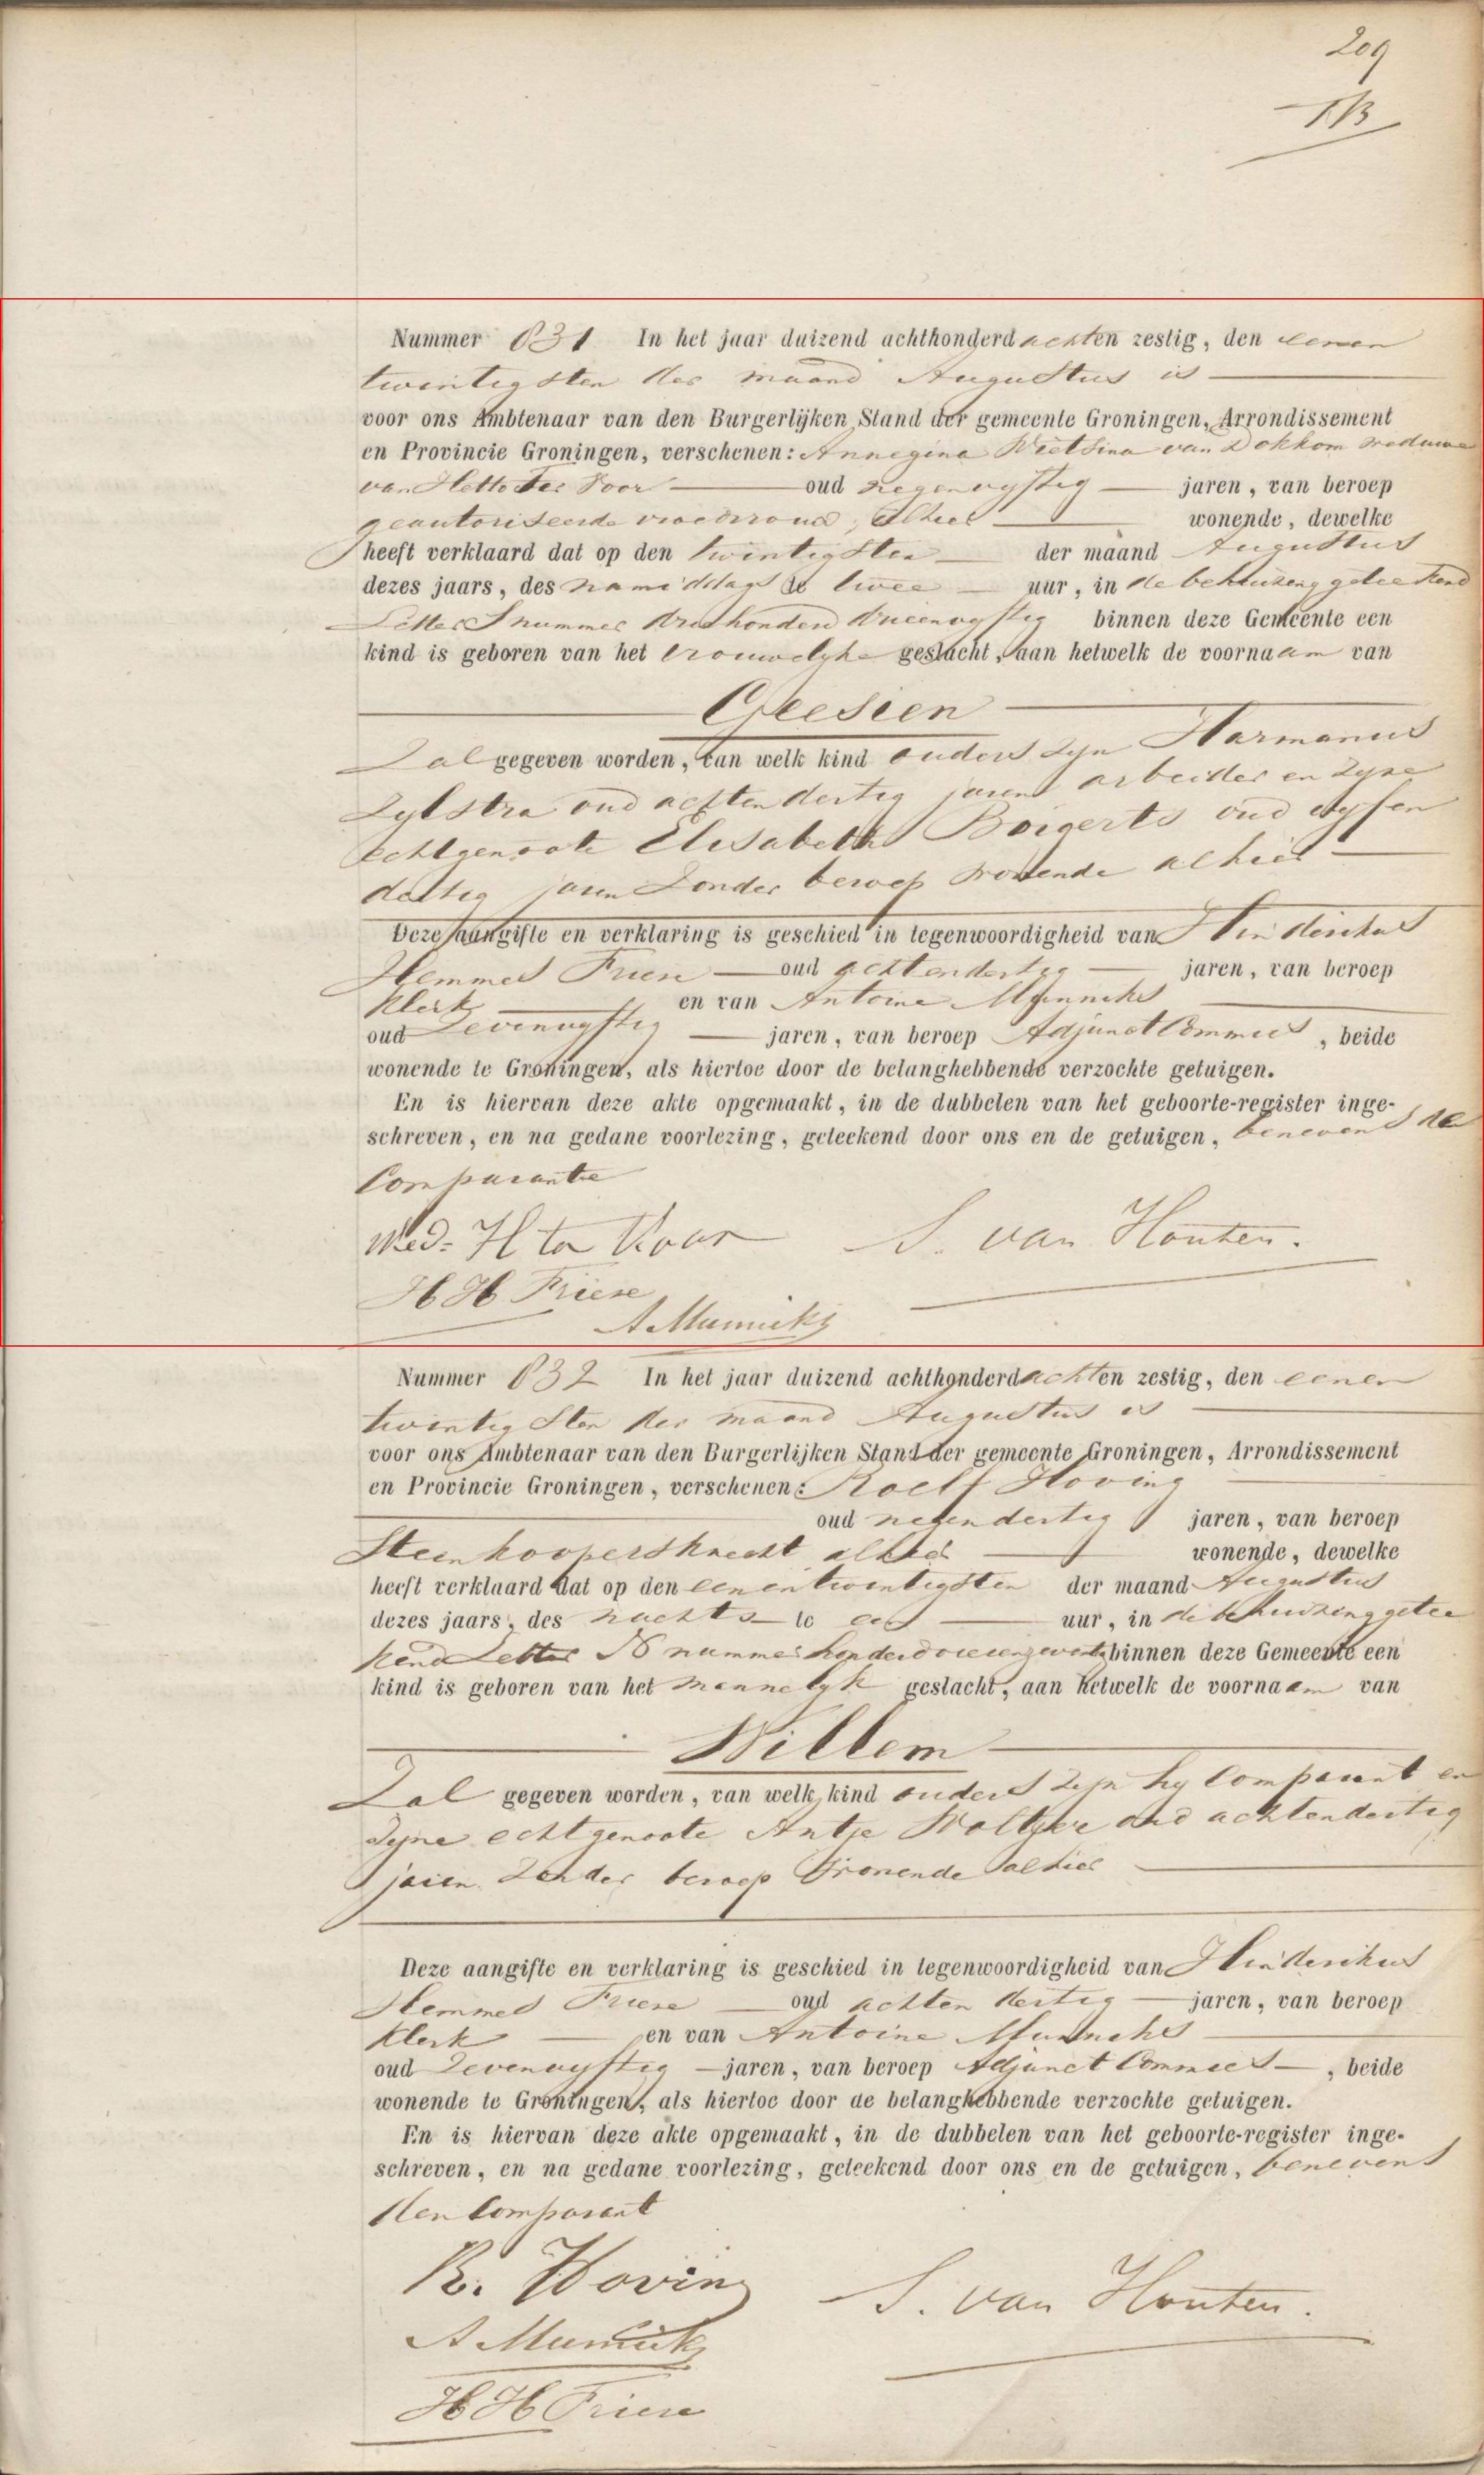 209
Nummer 831 In het jaar duizend achthonderd achten zestig, den eenen
twintigsten der maand Augustus is
voor ons Ambtenaar van den Burgerlijken Stand der gemeente Groningen, Arrondissement
en Provincie Groningen, verschenen: Annegina Wietsina van Dokkom weduwe
van Hette ter Voor oud negenvyftig jaren, van beroep
geautoriseerde vroedvrouw, alhier wonende, dewelke
heeft verklaard dat op den twintigsten der maand Augustus
dezes jaars, des namiddags te twee uur, in de behuizing geteekend
Letter S nummer driehonderd drieenvyftig binnen deze Gemeente een
kind is geboren van het vrouwelyke geslacht, aan hetwelk de voornaam van
Geesien
Zal gegeven worden, van welk kind ouders zyn Harmannus
Zylstra oud achtendertig jaren arbeider en zyne
echtgenoote Elisabeth Boigerts oud vyfen
dertig jaren zonder beroep wonende alhier
Deze aangifte en verklaring is geschied in tegenwoordigheid van Hinderikus
Hemmes Friese oud achtendertig jaren, van beroep
Klerk en van Antoine Munniks
oud zevenvyftig jaren, van beroep Adjunct Commies, beide
wonende te Groningen, als hiertoe door de belanghebbende verzochte getuigen.
En is hiervan deze akte opgemaakt, in de dubbelen van het geboorte-register inge-
schreven, en na gedane voorlezing, geteekend door ons en de getuigen, benevens de
Comparante
Wed= H ter Voor S. van Houten.
H H Friese
A Munniks
Nummer 832 In het jaar duizend achthonderd achten zestig, den eenen
twintigsten der maand Augustus is
voor ons Ambtenaar van den Burgerlijken Stand der gemeente Groningen, Arrondissement
en Provincie Groningen, verschenen: Roelf Hoving
oud negendertig jaren, van beroep
Steenkoopersknecht alhier wonende, dewelke
heeft verklaard dat op den eenentwintigsten der maand Augustus
dezes jaars, des nachts te een uur, in de behuizing getee
kend Letter N nummer honderd binnen deze Gemeente een
kind is geboren van het mannelyk geslacht, aan hetwelk de voornaam van
Willem
Zal gegeven worden, van welk kind ouders zyn hy Comparant en
zyne echtgenoote Antje Woltjer oud achtendertig
jaren zonder beroep wonende alhier
Deze aangifte en verklaring is geschied in tegenwoordigheid van Hinderikus
Hemmes Friese oud achten dertig jaren, van beroep
Klerk en van Antoine Munniks
oud zevenvyftig jaren, van beroep Adjunct Commies, beide
wonende te Groningen, als hiertoe door de belanghebbende verzochte getuigen.
En is hiervan deze akte opgemaakt, in de dubbelen van het geboorte-register inge-
schreven, en na gedane voorlezing, geteekend door ons en de getuigen, benevens
den Comparant
R. Hoving S. van Houten.
A Munniks
H H Friese